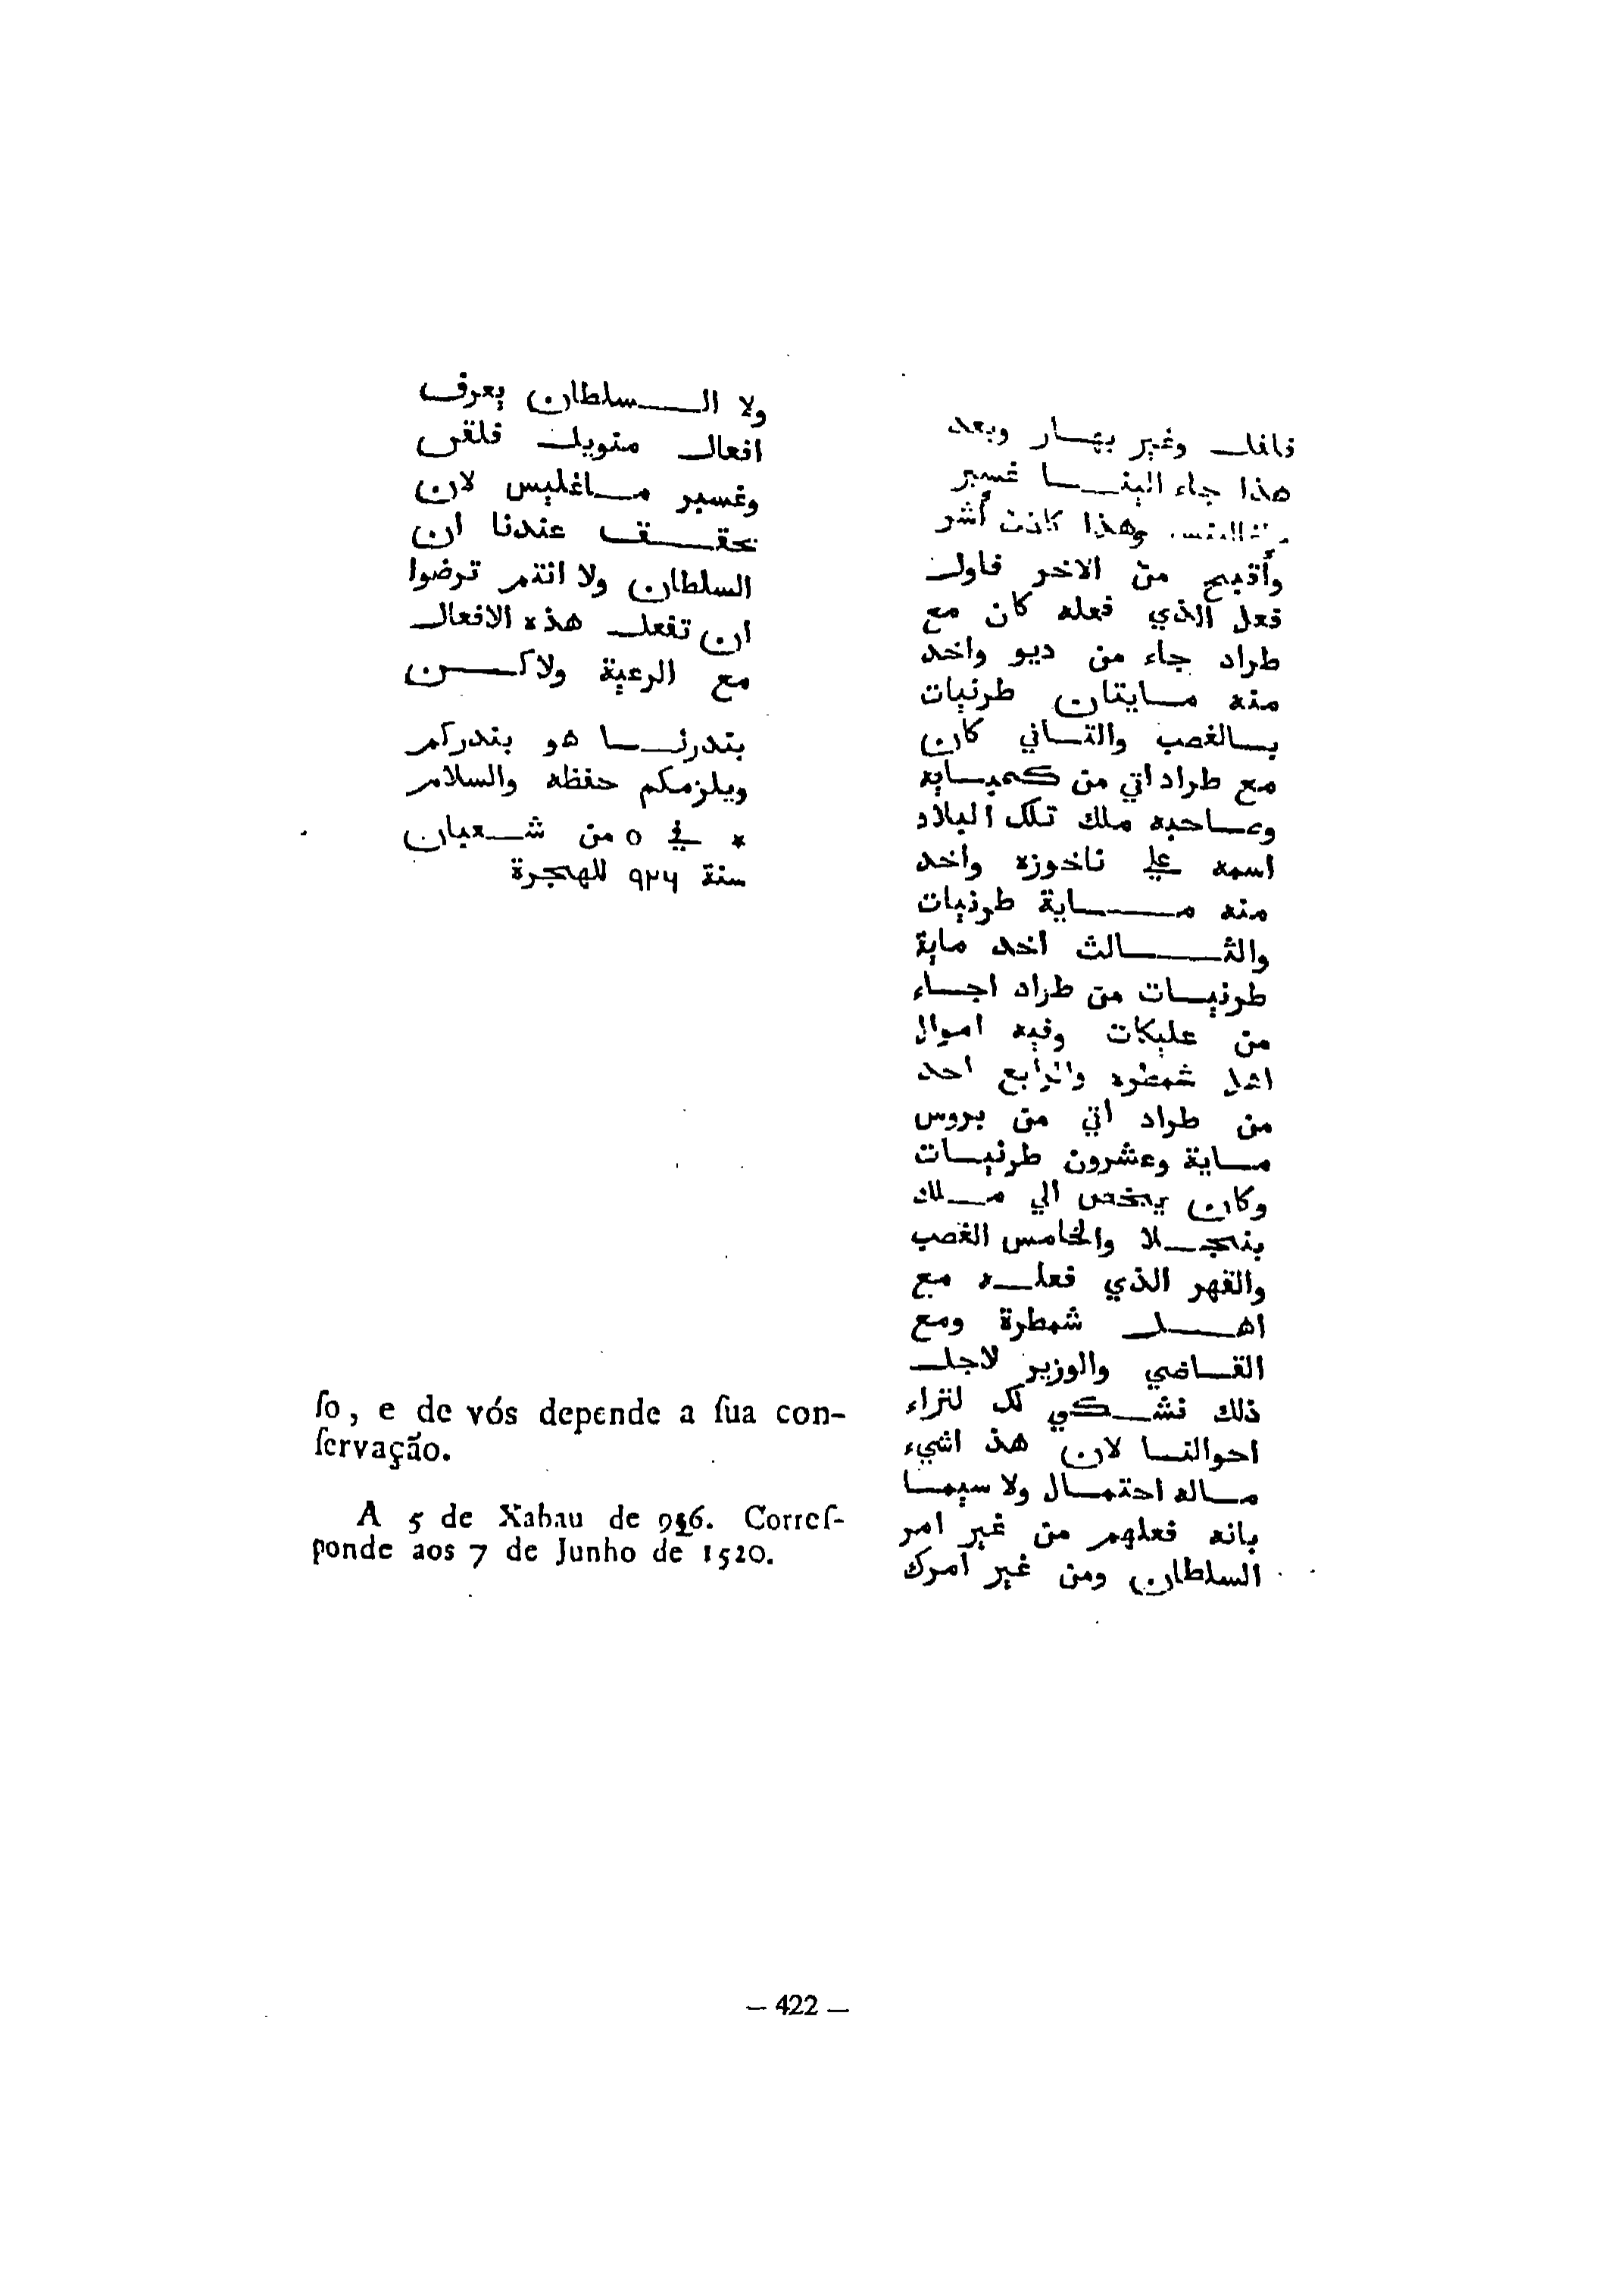 فافل وغير بهار وبعد
هذا جاء الينا غسبر
وهذا كانت أشر
وأقبح من الاخر فاول
فعل الذي فعله كان مع
طراد جاء من ديو واخد
منه مايتان طرنيات
بالغصب والتاني كان
مع طراد اتي من كمبايه
وصاحبه ملك تلك البلاد
اسمه علي ناخوزه واخد
منه ماية طرنيات
والثالث اخد ماية
طرنيات من طراد اجاء
من عليكات وفيه اموال
شمطره والرابع احد
من طراد اتي من بروس
ماية وعشرون طرنيات
وكان يخص الي ملك
بنجلا والخامس الغصب
والقهر الذي فعله مع
اهل شمطرة ومع
القاضي والوزير لاجل
ذلك نشكي لك لتراء
احوالنا لان هذ اشيء
ماله احتمال ولا سيما
بانه فعلهم من غير امر
السلطان ومن غير امرك
ولا السلطان يعرف
افعال منويل فلقس
وغسبر ماغليس لان
تحقق عندنا ان
السلطان ولا انتم ترضوا
ان تفعل هذه الافعال
مع الرعية ولاكن
بندرنا هو بندركم
ويلزمكم حفظه والسلام
* في ٥ من شعبان
سنة ٩٢٦ للهجرة
ſo, e de vós depende a ſua con-
ſervação.
A 5 de Xabau de 926. Correſ-
ponde aos 7 de Junho de 1520.
— 422 —